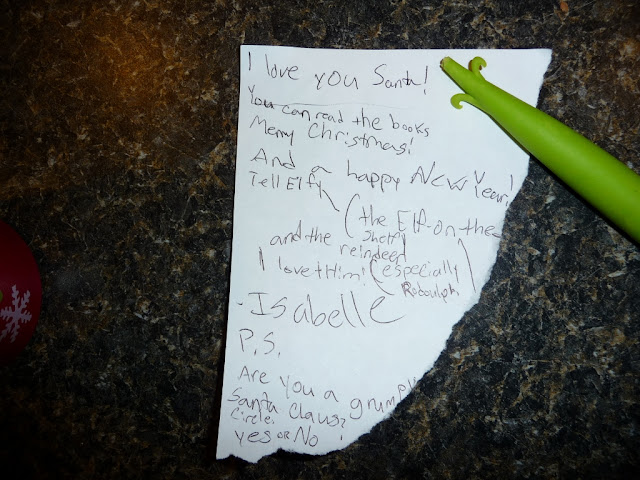 I love you Santa!
You can read the books
Merry Christmas!
And a happy New Year!
Tell Elfy
(the Elf-on-the
Shelf)
and the reindeer
I love tHim! (especially
Rodoulph)
- Isabelle
P.S.
Are you a grumpy
Santa Claus?
Circle:
yes or No !